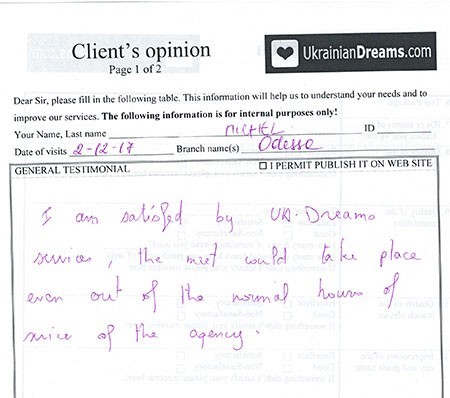 Client's opinion
Page 1 of 2
UkrainianDreams.com
Dear Sir, please fill in the following table. This information will help us to understand your needs and to
improve our services. The following information is for internal purposes only!
Your Name, Last name MICHEL ID
Date of visits 2-12-17 Branch name(s) Odessa
GENERAL TESTIMONIAL I PERMIT PUBLISH IT ON WEB SITE
I am satisfied by UA. Dreams
services, the meet could take place
even out of the normal hours of
service of the agency.